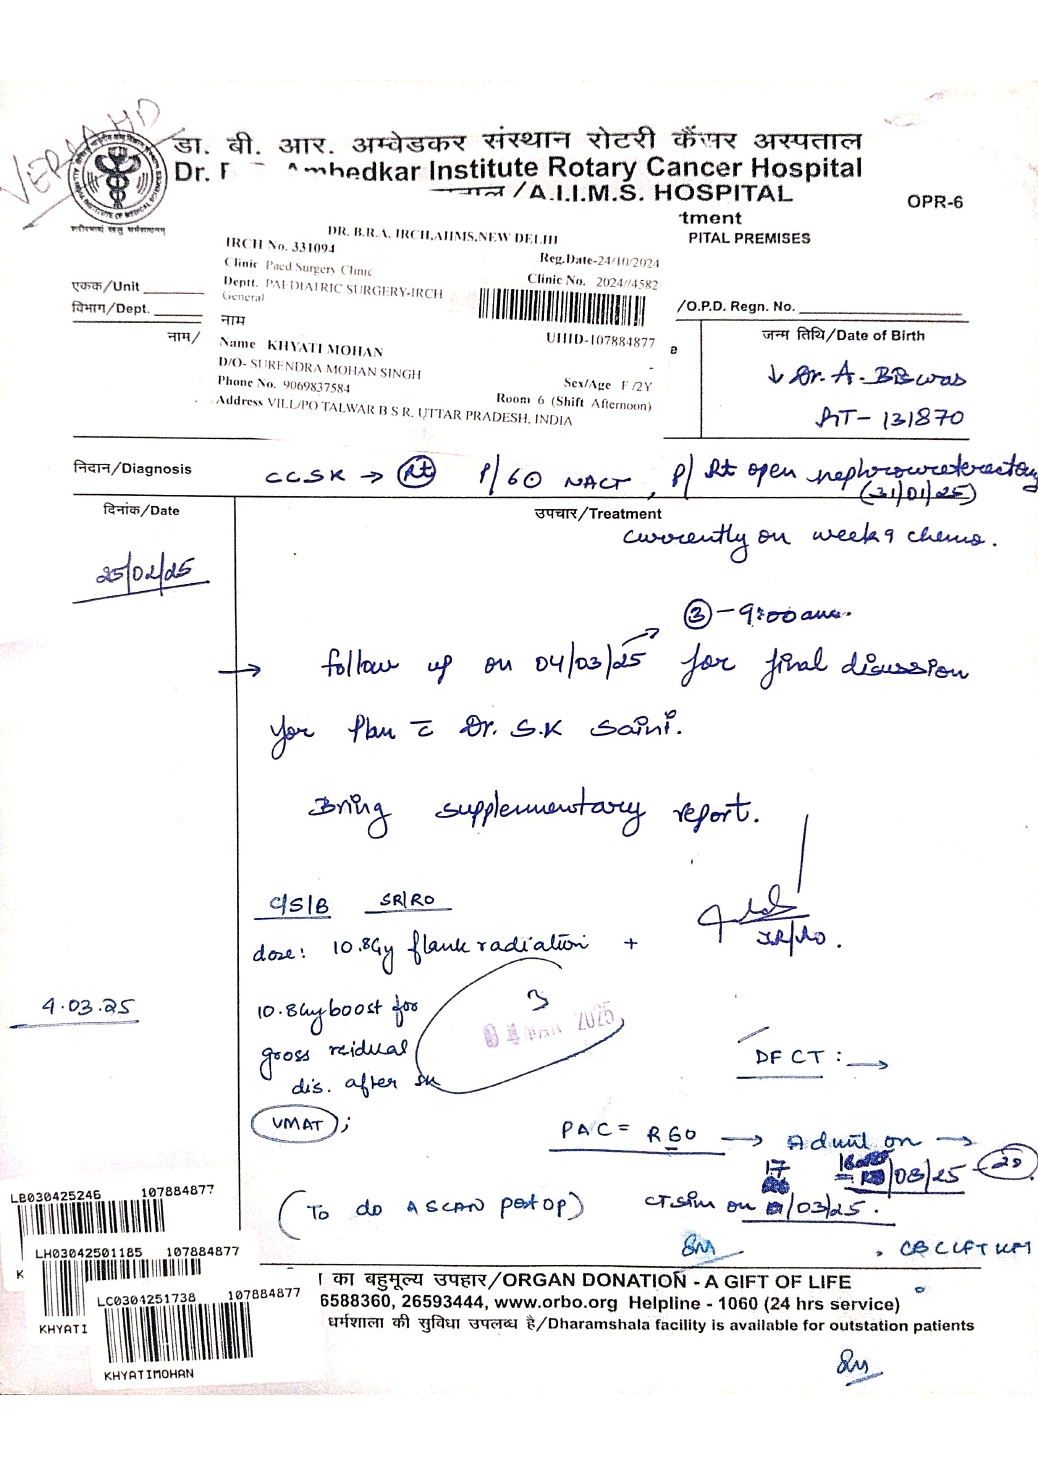 VERMA HD
डा. बी. आर. अम्बेडकर संस्थान रोटरी कैंसर अस्पताल
Dr. Ambedkar Institute Rotary Cancer Hospital
/A.I.I.M.S. HOSPITAL
OPR-6
tment
PITAL PREMISES
DR. B.R.A. IRCH,AIIMS,NEW DELHI
IRCH No. 331094
Reg.Date-24/10/2024
Clinic Paed Surgery Clinic
Clinic No. 2024//4582
Deptt. PAEDIATRIC SURGERY-IRCH
General
एकक/Unit
विभाग/Dept.
/O.P.D. Regn. No.
नाम
नाम/
Name KHYATI MOHAN
UHID-107884877
D/O- SURENDRA MOHAN SINGH
Phone No. 9069837584
Sex/Age F /2Y
Room 6 (Shift Afternoon)
Address VILL/PO TALWAR B S R, UTTAR PRADESH, INDIA
जन्म तिथि/Date of Birth
↓ Dr. A. Biswas
RT- 131870
निदान/Diagnosis
CCSK → Rt P/6 NACT, P/ Rt open nephroureterectomy
(31/01/25)
दिनांक/Date
उपचार/Treatment
currently on week 9 chemo.
25/02/25
③ - 9:00 am.
→ follow up on 04/03/25 for final discussion
for plan c̄ Dr. S.K Saini.
Bring supplementary report.
C/S/B SR/RO
SR/RO.
dose: 10.8Gy flank radiation +
4.03.25
10.8Gy boost for
gross residual
dis. after sx
3
04 MAR 2025
DFCT : →
VMAT ;
PAC = R 60 → Admit on →
/03/25 - 20
17
(To do A SCAN post op)
CT sim on /03/25.
. CBC LFT KFT
LB030425246 107884877
LH03042501185 107884877
K
LC0304251738 107884877
KHYATI
KHYATIMOHAN
का बहुमूल्य उपहार/ORGAN DONATION - A GIFT OF LIFE
6588360, 26593444, www.orbo.org Helpline - 1060 (24 hrs service)
धर्मशाला की सुविधा उपलब्ध है/Dharamshala facility is available for outstation patients